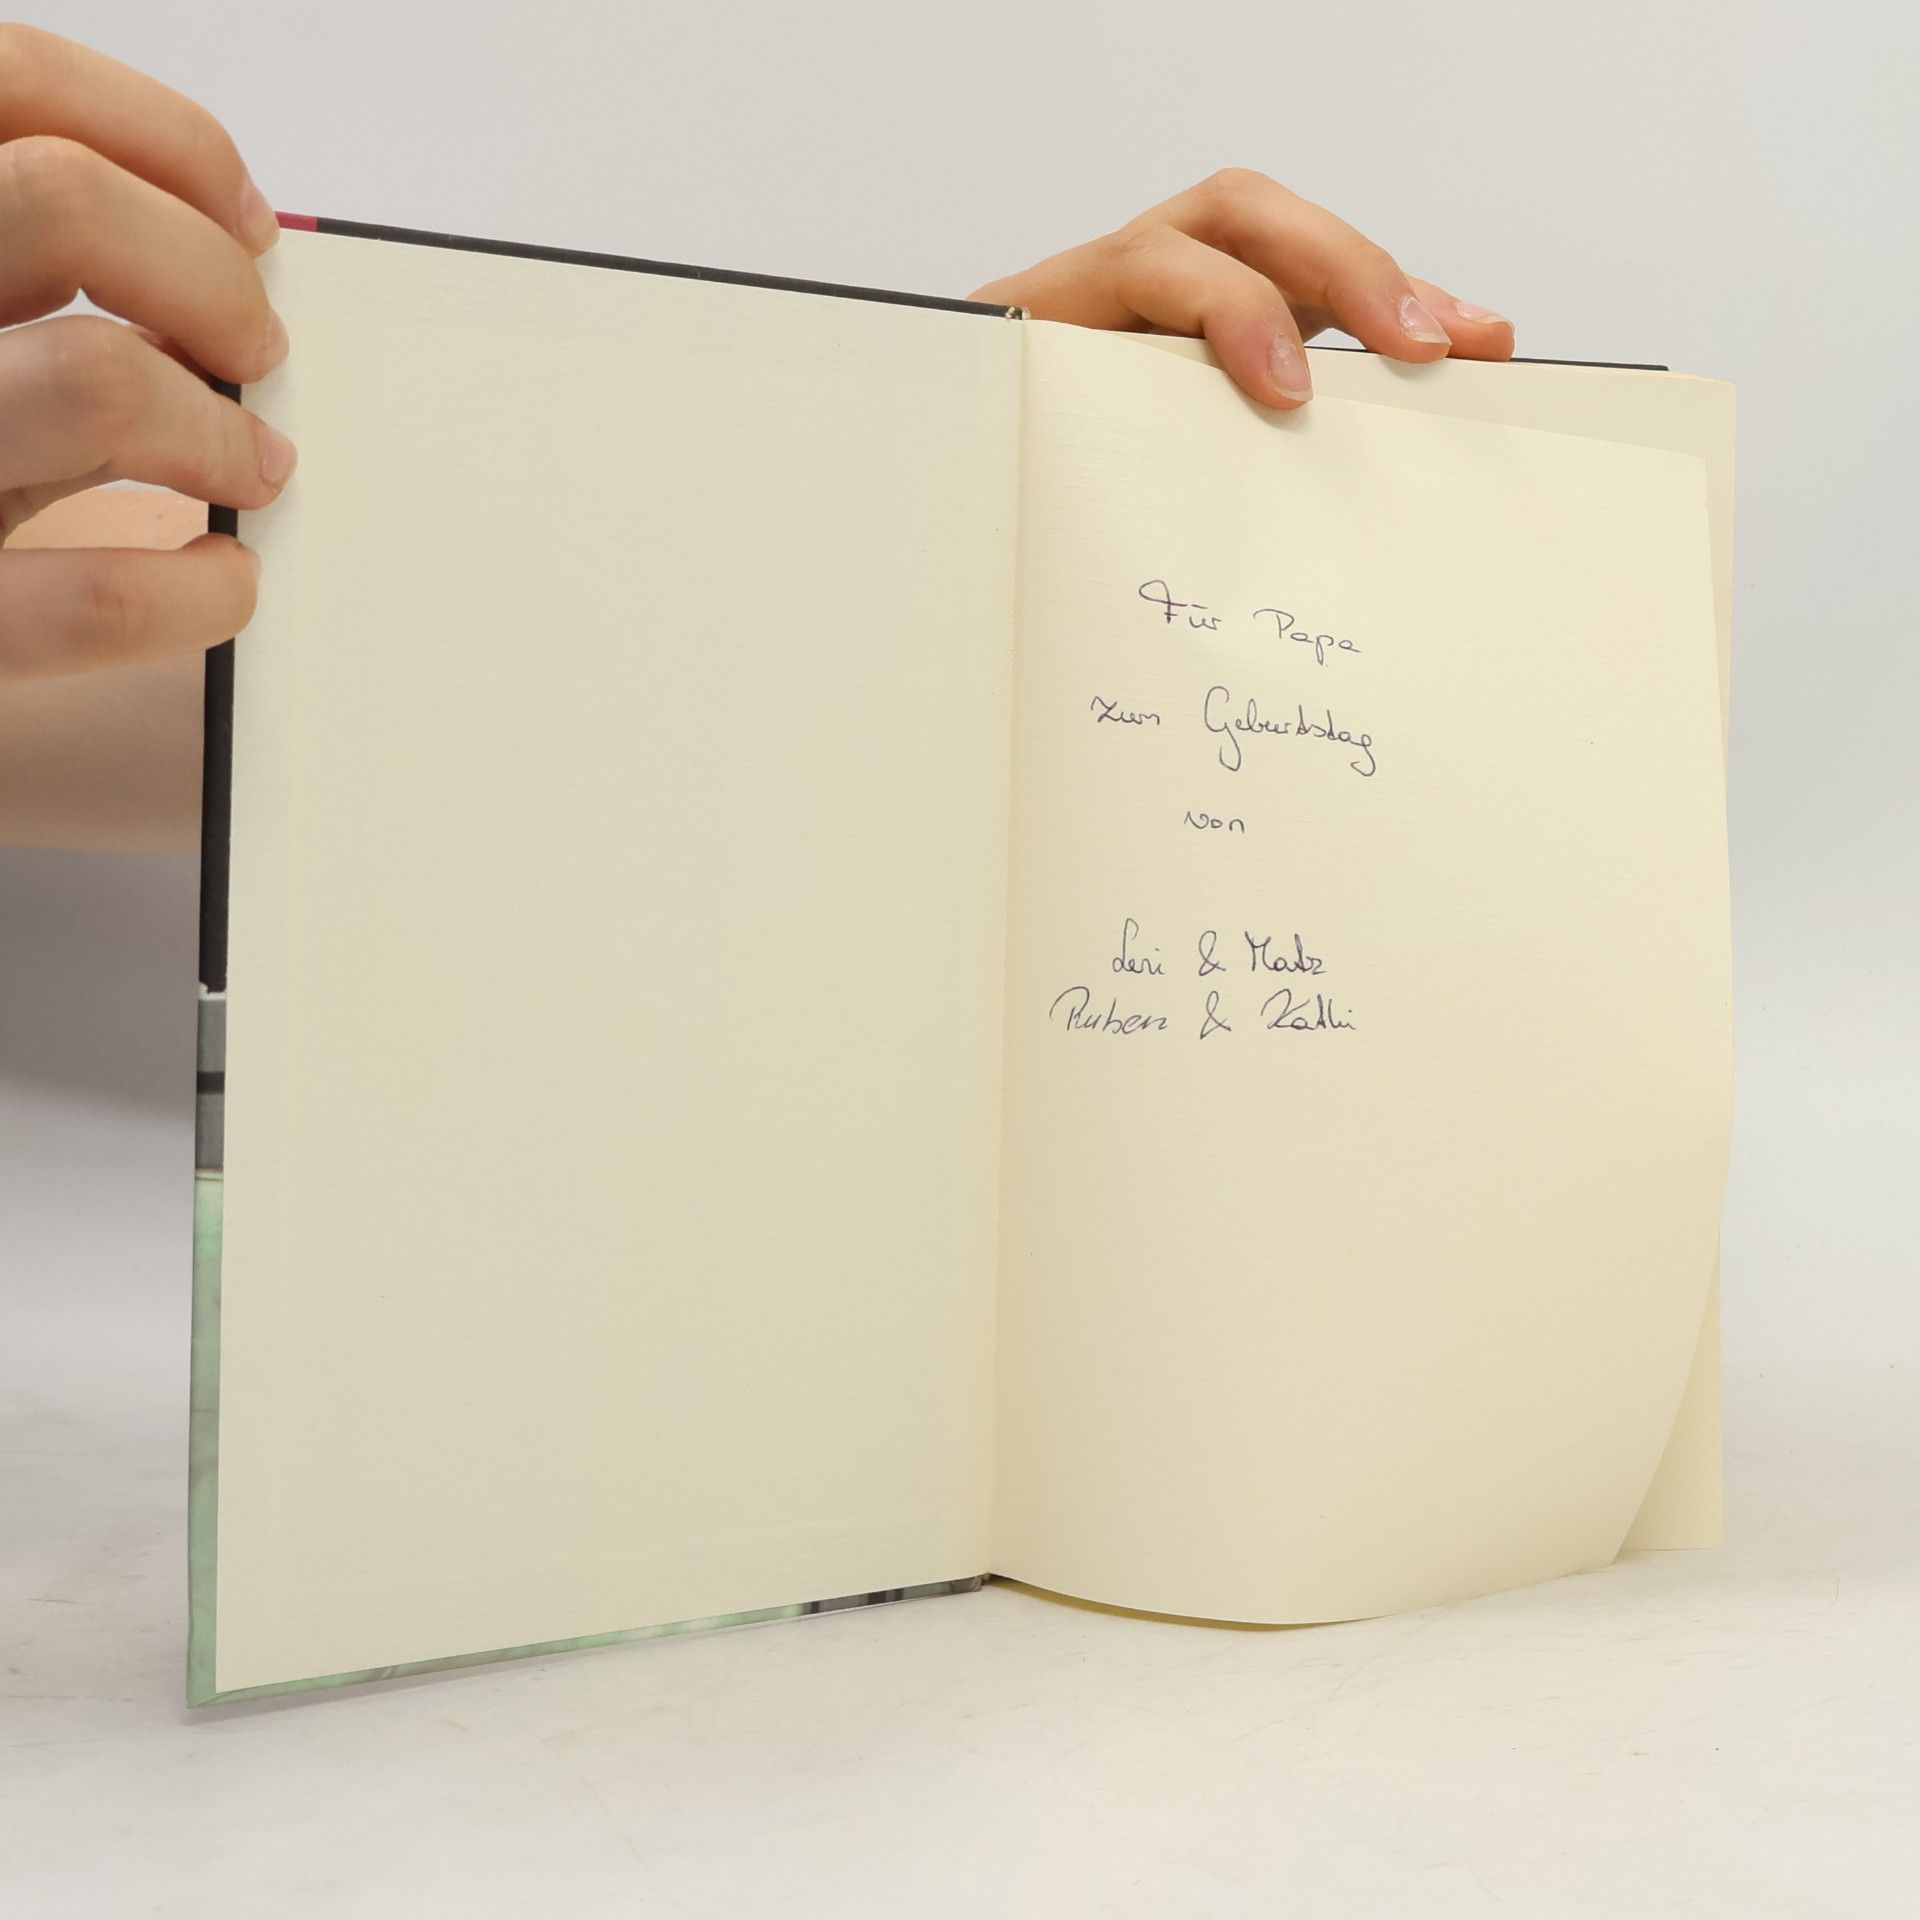 Für Papa
zum Geburtstag
von
Leni & Matz
Ruben & Kathi